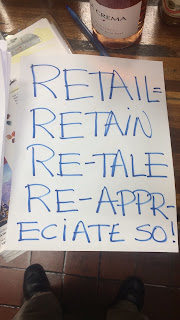 CREMA
RETAIL=
RETAIN
RE-TALE
RE-APPR-
ECIATE SO!